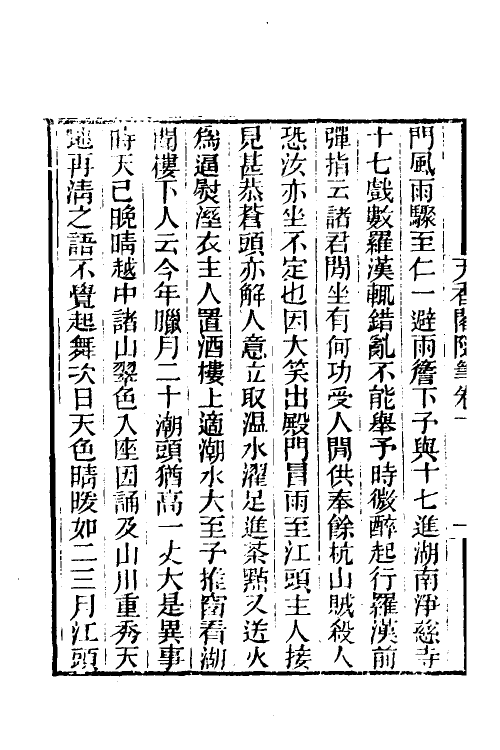 門風雨驟至仁一避雨簷下子與十七進湖南淨慈寺
十七戲數羅漢輒錯亂不能舉予時微醉起行羅漢前
彈指云諸君閒坐有何功受人閒供奉餘杭山賊殺人
恐汝亦坐不定也因大笑出殿門冒雨至江頭主人接
見甚恭蒼頭亦解人意立取温水濯足進茶點又送火
爲逼熨溼衣主人置酒樓上適潮水大至子推窗看湖
聞樓下人云今年臘月二十潮頭猶高一丈大是異事
時天已晚晴越中諸山翠色入座因誦及山川重秀天
地再清之語不覺起舞次日天色晴暖如二三月江頭
天香閣隨筆卷一
一